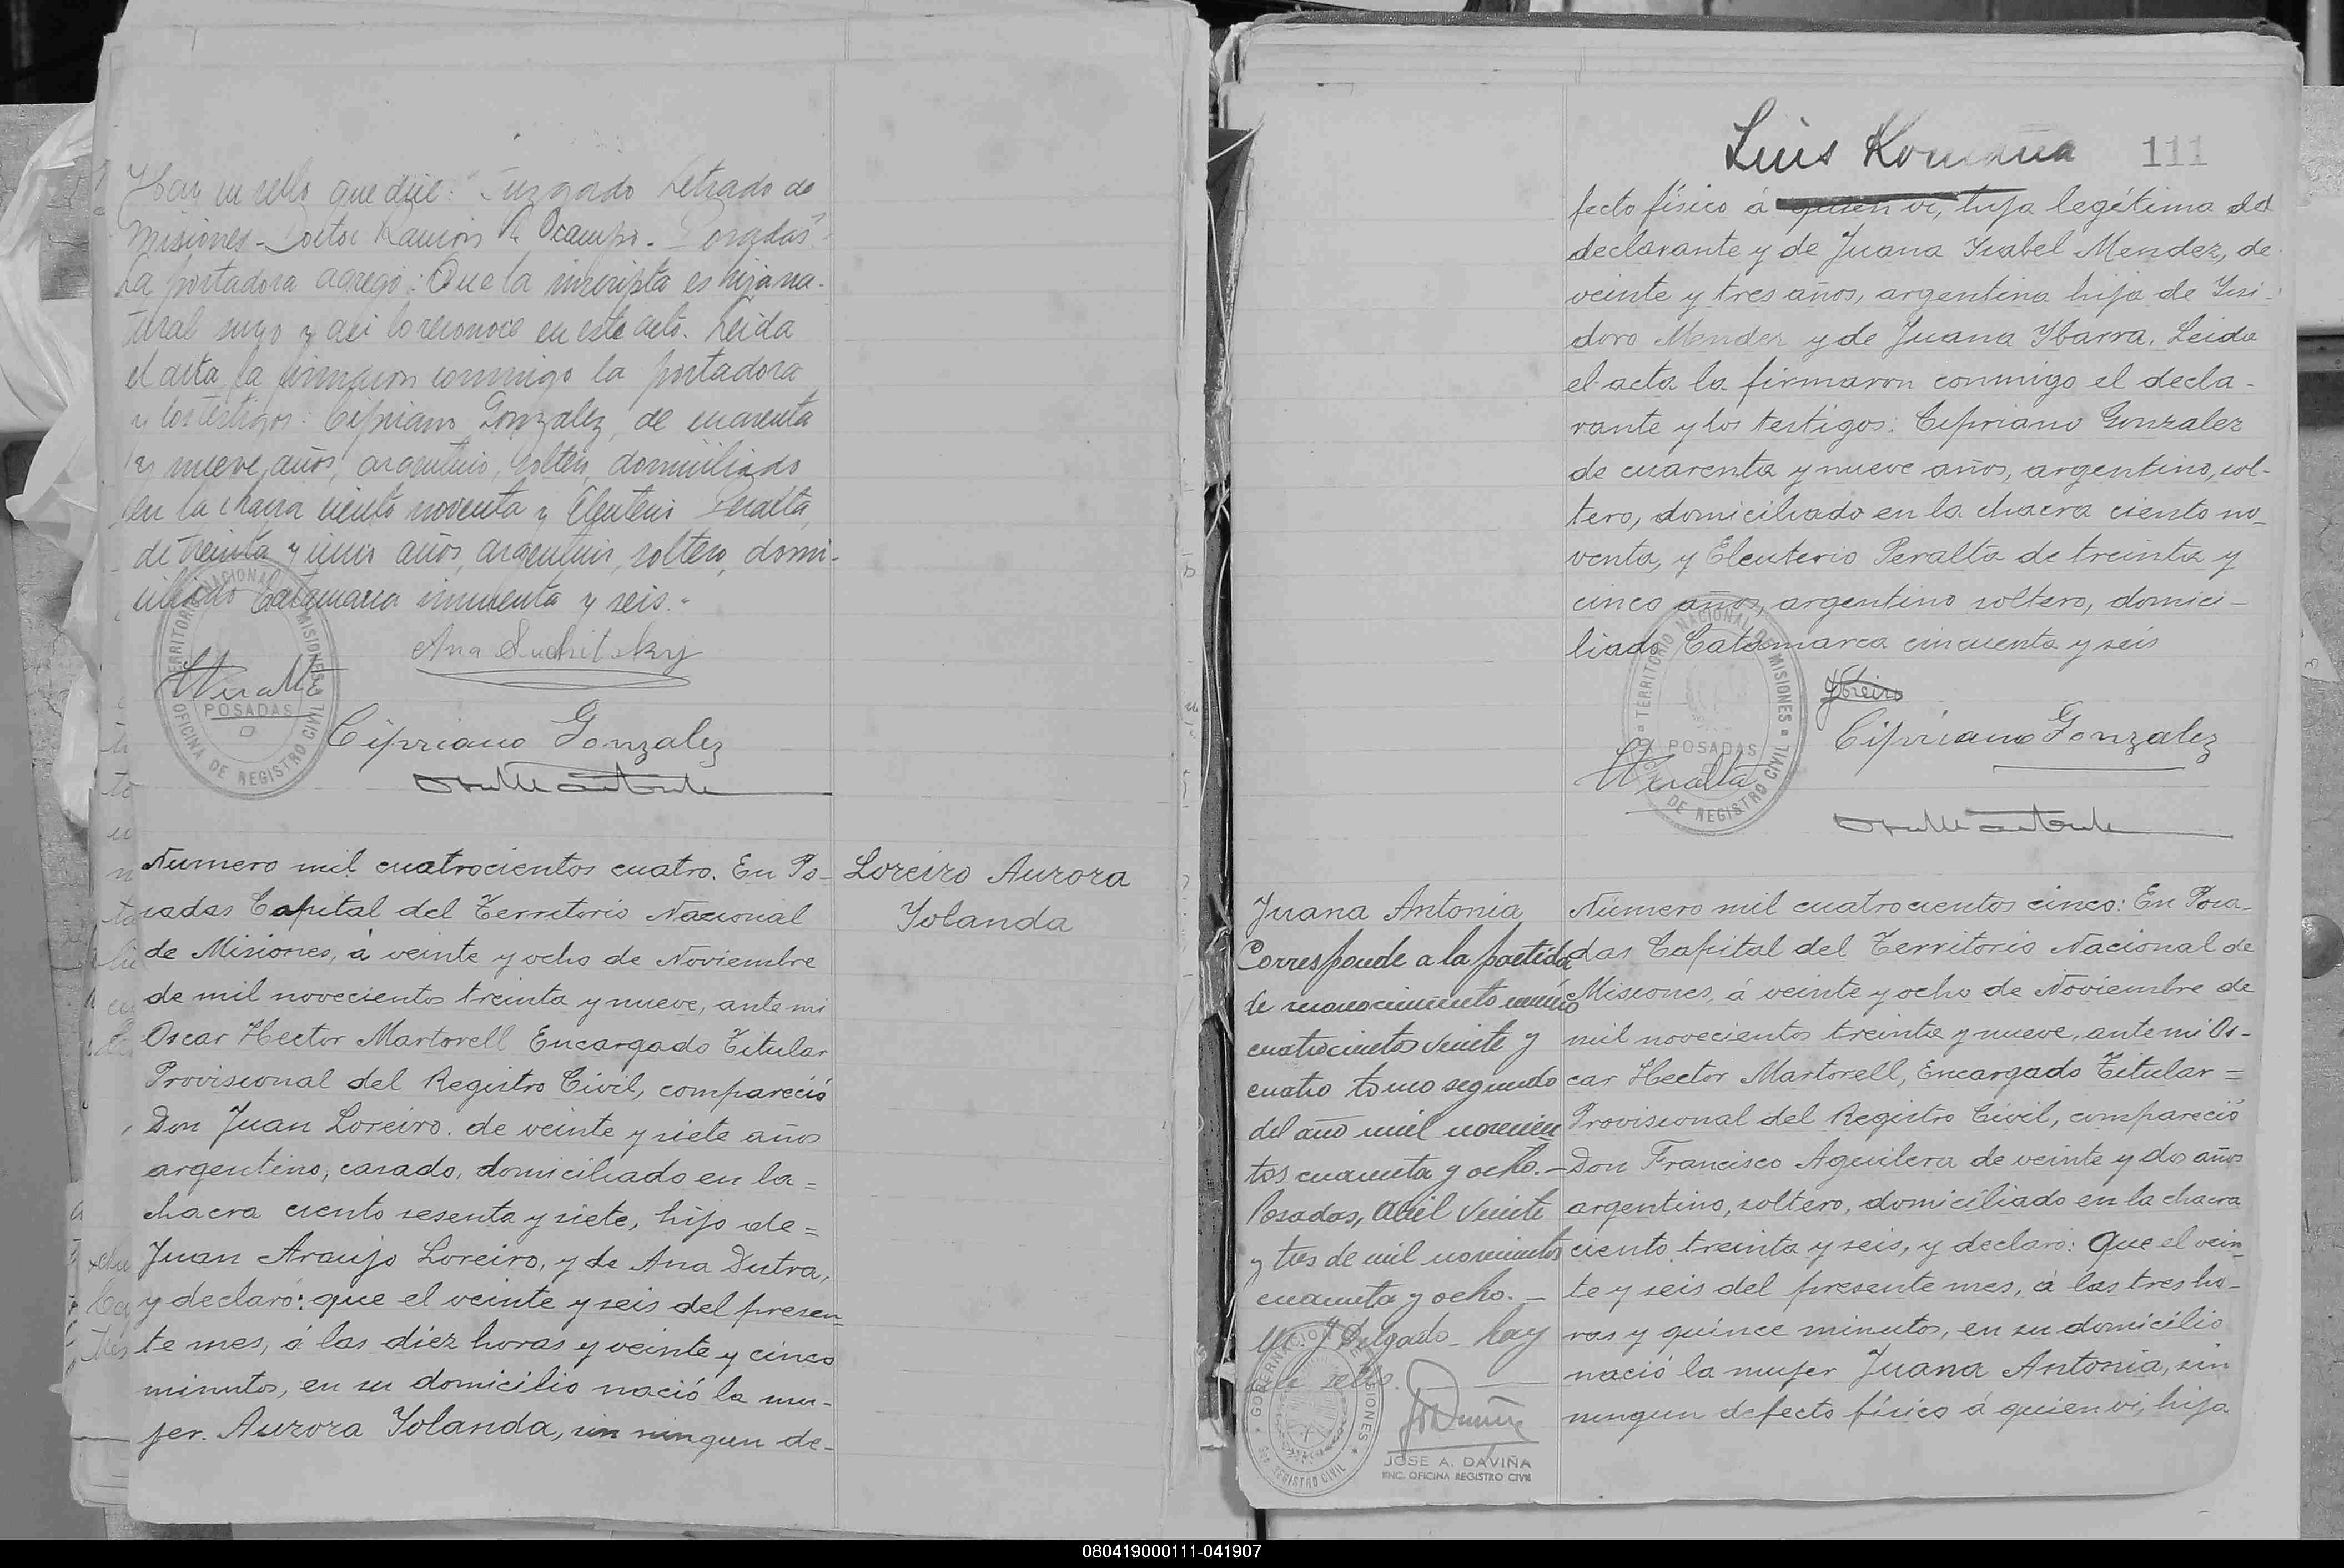 Hay un sello que dice: Juzgado Letrado de
Misiones - Doctor Ramón A. Ocampo. - Posadas
La portadora agregó: Que la inscripta es hija na-
tural suya y asi lo reconoce en este acto. Leida
el acta la firmaron conmigo la portadora
y los testigos: Cipriano Gonzalez, de cuarenta
y nueve años, argentino, soltero, domiciliado
en la chacra ciento noventa y Eleuterio Peralta,
de treinta y cinco años, argentino, soltero, domi-
ciliado Catamarca cincuenta y seis.-
Ana Suchitsky
TERRITORIO NACIONAL DE MISIONES
POSADAS
OFICINA DE REGISTRO CIVIL
EPeralta
Cipriano Gonzalez
Numero mil cuatrocientos cuatro. En Po-
sadas Capital del Territorio Nacional
de Misiones, á veinte y ocho de Noviembre
de mil novecientos treinta y nueve, ante mi
Oscar Hector Martorell Encargado Titular
Provisional del Registro Civil, compareció
Don Juan Loreiro. de veinte y siete años
argentino, casado, domiciliado en la=
chacra ciento sesenta y siete, hijo de=
Juan Araujo Loreiro, y de Ana Dutra,
y declaró: que el veinte y seis del presen-
te mes, á las diez horas y veinte y cinco
minutos, en su domicilio nació la mu-
jer. Aurora Yolanda, sin ningun de-
Loreiro Aurora
Yolanda
Luis 111
fecto físico á quien vi, hija legítima del
declarante y de Juana Isabel Mendez, de
veinte y tres años, argentina hija de Ysi-
doro Mendez y de Juana Ybarra. Leida
el acta la firmaron conmigo el decla-
rante y los testigos: Cipriano Gonzalez
de cuarenta y nueve años, argentino, sol-
tero, domiciliado en la chacra ciento no-
venta, y Eleuterio Peralta de treinta y
cinco años, argentino soltero, domici-
liado Catamarca cincuenta y seis
TERRITORIO NACIONAL DE MISIONES
POSADAS
DE REGISTRO CIVIL
Cipriano Gonzalez
EPeralta
Juana Antonia
Corresponde a la partida
de reconocimiento número
cuatrocientos veinte y
cuatro tomo segundo
del año mil novecien
tos cuarenta y ocho.-
Posadas, Abril veinte
y tres de mil novecientos
cuarenta y ocho. -
M. J. Delgado - hay
un sello.
GOBERNACION DE MISIONES
REGISTRO CIVIL
JOSE A. DAVIÑA
ENC. OFICINA REGISTRO CIVIL
Número mil cuatrocientos cinco: En Posa-
das Capital del Territorio Nacional de
Misiones, á veinte y ocho de Noviembre de
mil novecientos treinta y nueve, ante mi Os-
car Hector Martorell, Encargado Titular=
Provisional del Registro Civil, compareció
Don Francisco Aguilera de veinte y dos años
argentino, soltero, domiciliado en la chacra
ciento treinta y seis, y declaró: Que el vein-
te y seis del presente mes, á las tres ho-
ras y quince minutos, en su domicilio
nació la mujer Juana Antonia, sin
ningun defecto físico á quien vi, hija
080419000111-041907